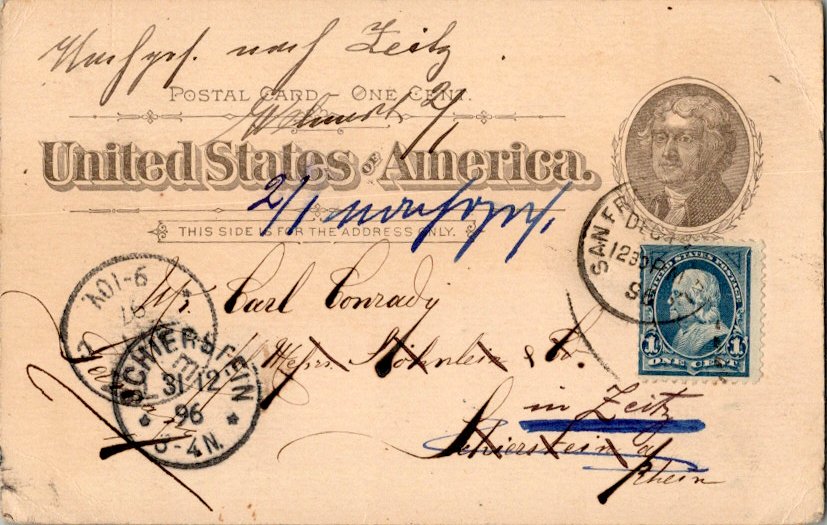 nach Zeitz
POSTAL CARD – ONE CENT.
2/1
United States OF America.
2/1
THIS SIDE IS FOR THE ADDRESS ONLY.
SAN FR
DEC
1230P
96
UNITED STATES POSTAGE
1 ONE CENT 1
Mr. Carl Conrady
Messrs. Söhnlein & Co.
in Zeitz
Schierstein a/
Rhein
9-10V
SCHIERSTEIN
31 12
96
3-4N.